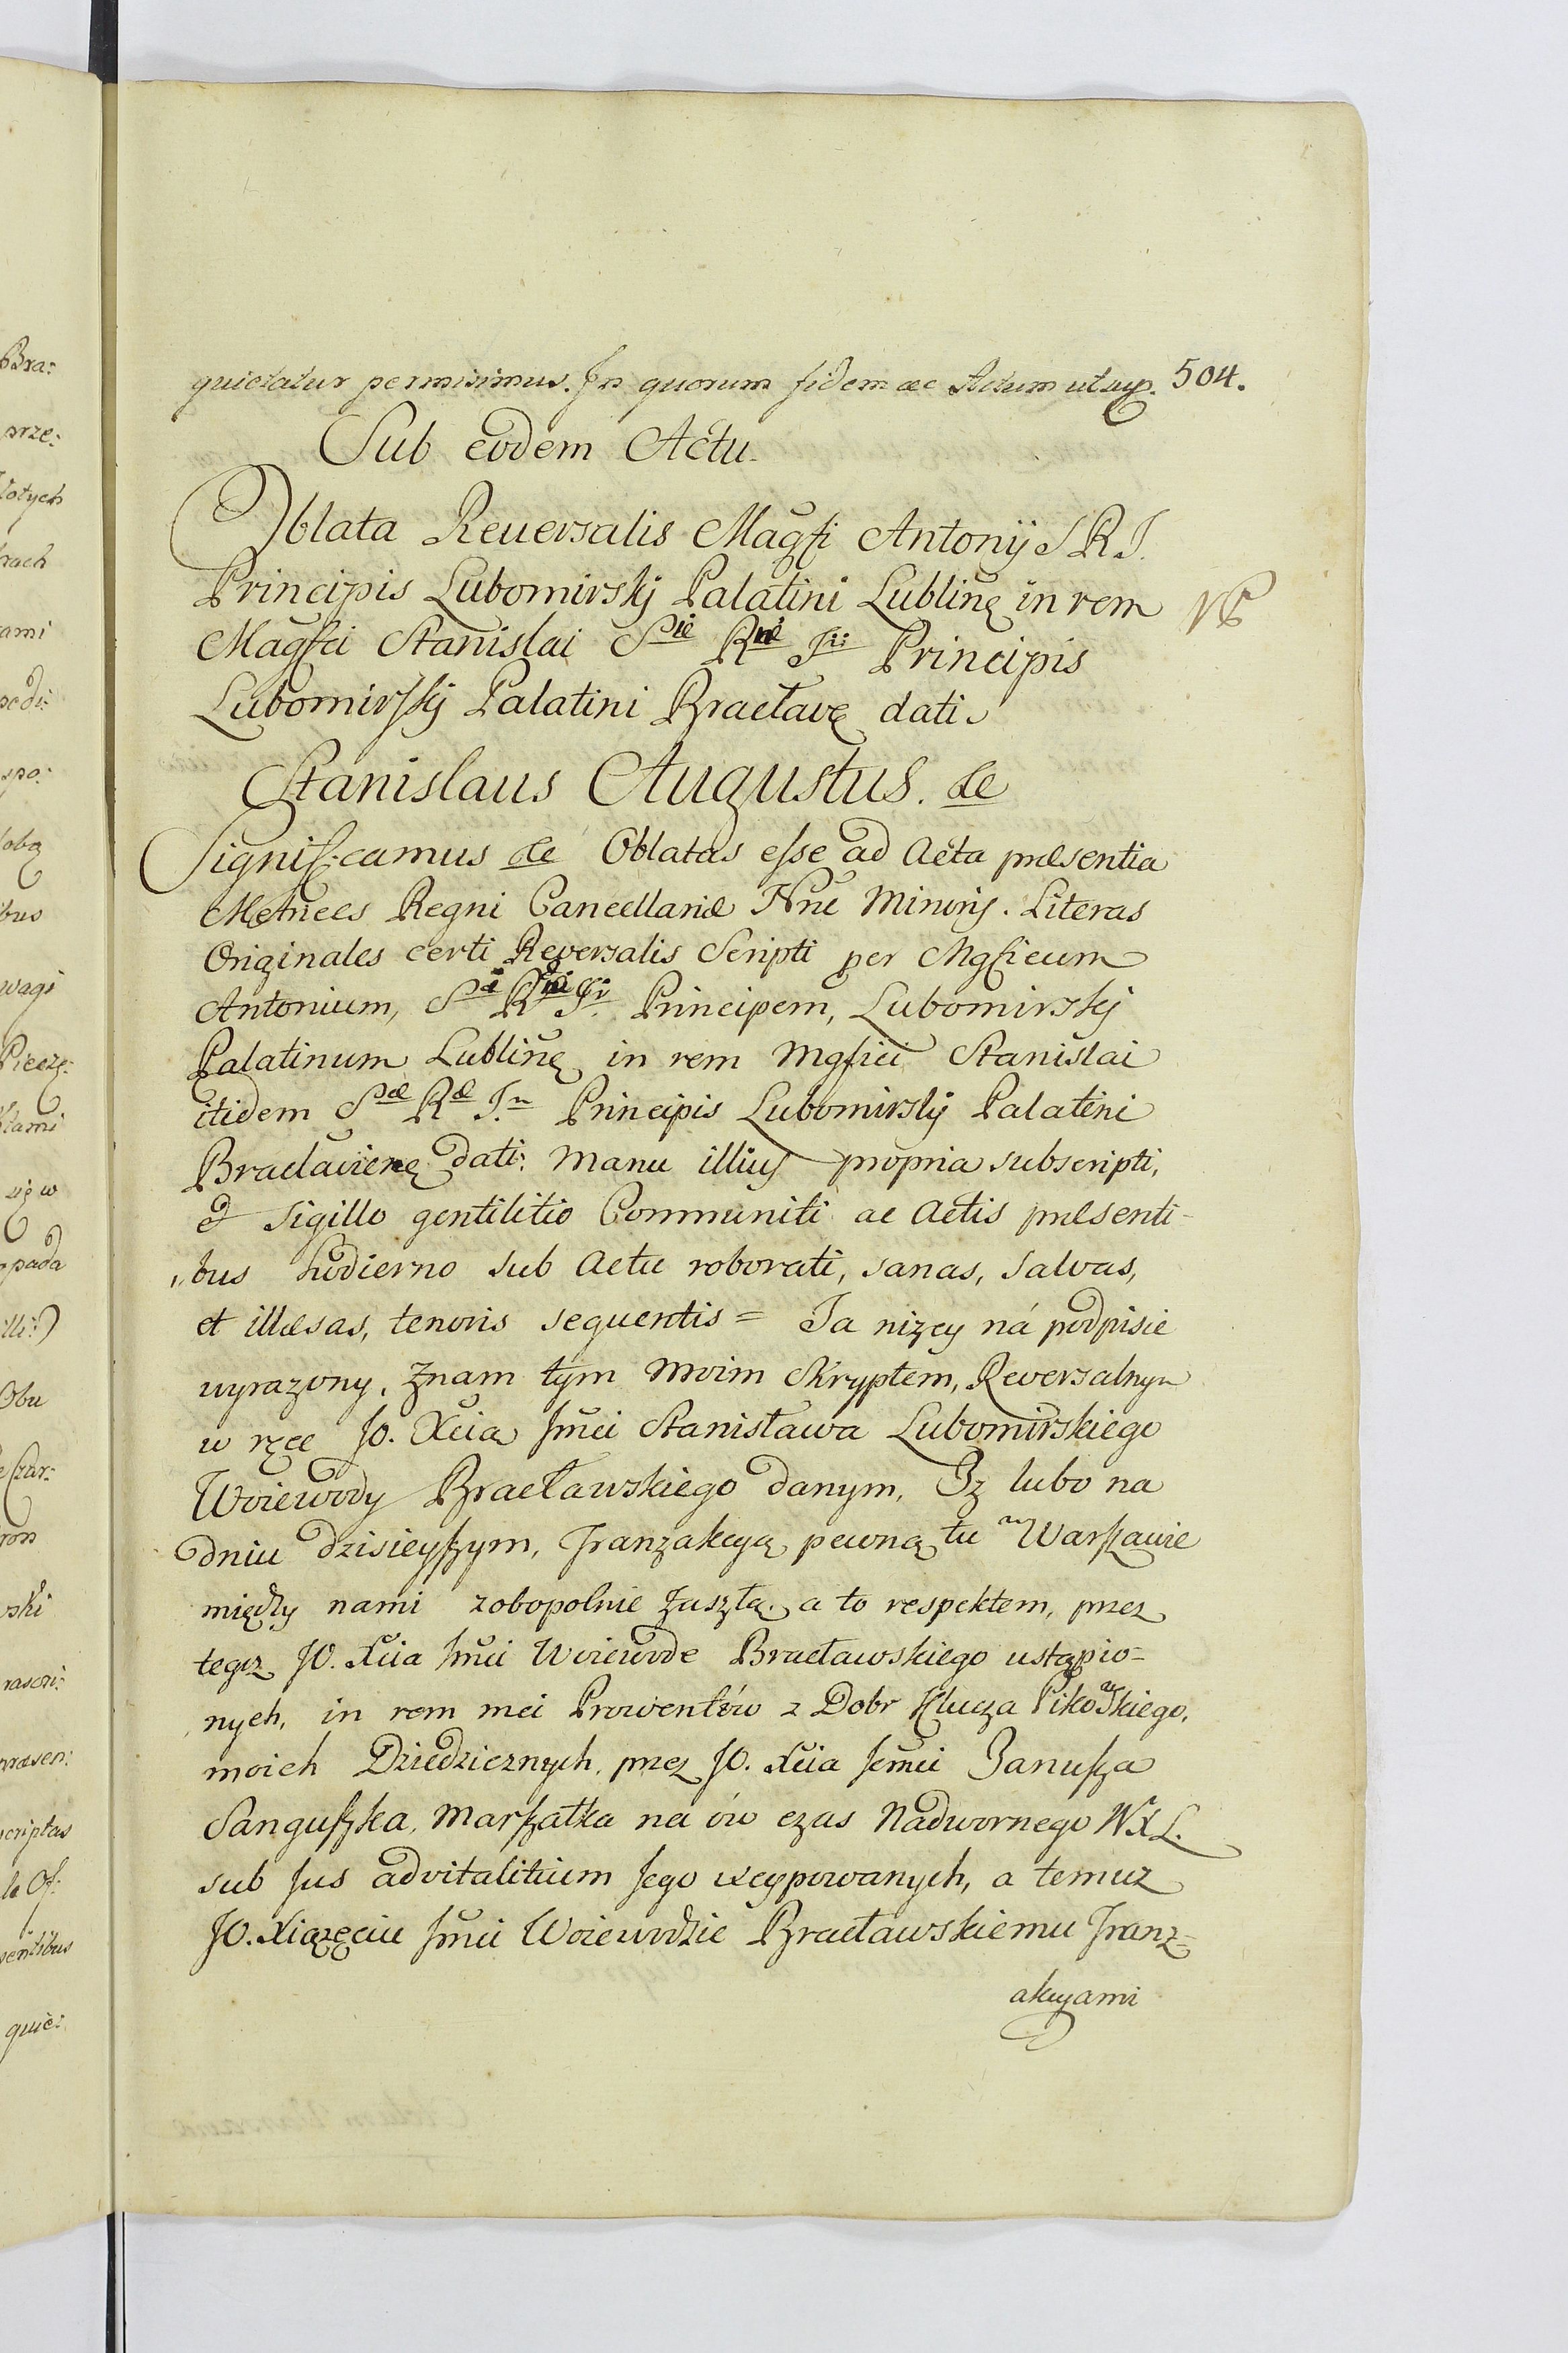 quietatur permisimus. In quorum fidem &c Actum ut sup. 504.
Sub eodem Actu.
Oblata Reuersalis Magfi Antonij S R I.
Principis Lubomirskj Palatini Lublinẹ in rem
Magfci Stanislai Sⁱᵉ Rⁿᵉ Iⁱⁱ Principis
Lubomirskij Palatini Bracłavẹ dati.
Stanislaus Augustus. &c
Significamus &c Oblatas esse ad Acta præsentia
Metrices Regni Cancellariæ Nrae Minoris. Literas
Originales certi Reversalis Scripti per Mgficum
Antonium, Principem, Lubomirskj
Palatinum Lublinẹ in rem Mgfici Stanislai
itidem Sᵃᵉ Rᵃᵉ Iⁱⁱ Principis Lubomirskij Palatini
Braclavienẹ dati: Manu illius propria subscripti,
et Sigillo gentilitio Communiti ac Actis præsenti-
„bus hodierno sub Actu roborati, sanas, salvas,
et illæsas, tenoris sequentis = Ja niżey ná podpisie
wyrazony, Znam tym Moim Skryptem, Reversalnym
w ręce JO. Xcia Jmci Stanisława Lubomirskiego
Woiewody Bracławskiego danym, Iz lubo na
dniu dzisieyszym, Tranzakcyą pewną tu w Warszawie
między nami zobopolnie Zaszłą. a to respektem, przez
tegoz JO. Xcia Jmci Woiewode Bracławskiego ustąpio-
nych, in rem mei Prowentów z Dobr Klucza Pikowskiego,
moich Dziedzicznych, przez JO. Xcia Jemci Janusza
Sanguszka, Marszałka na ów czas Nadwornego W X L.
sub Jus advitalitium Jego wcypowanych, a temuz
JO. Xiązęciu Jmci Woiewodzie Bracławskiemu Tranz=
akcyami